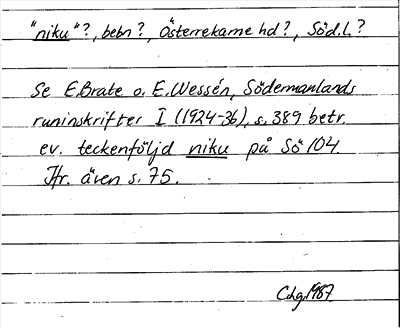 "niku"?, bebn?, Österrekarne hd?, Söd.l.?
Se E.Brate o. E.Wessén, Södermanlands
runinskrifter I (1924-36), s.389 betr.
ev. teckenföljd niku på Sö 104.
Jfr. även s.75.
Chg.1987